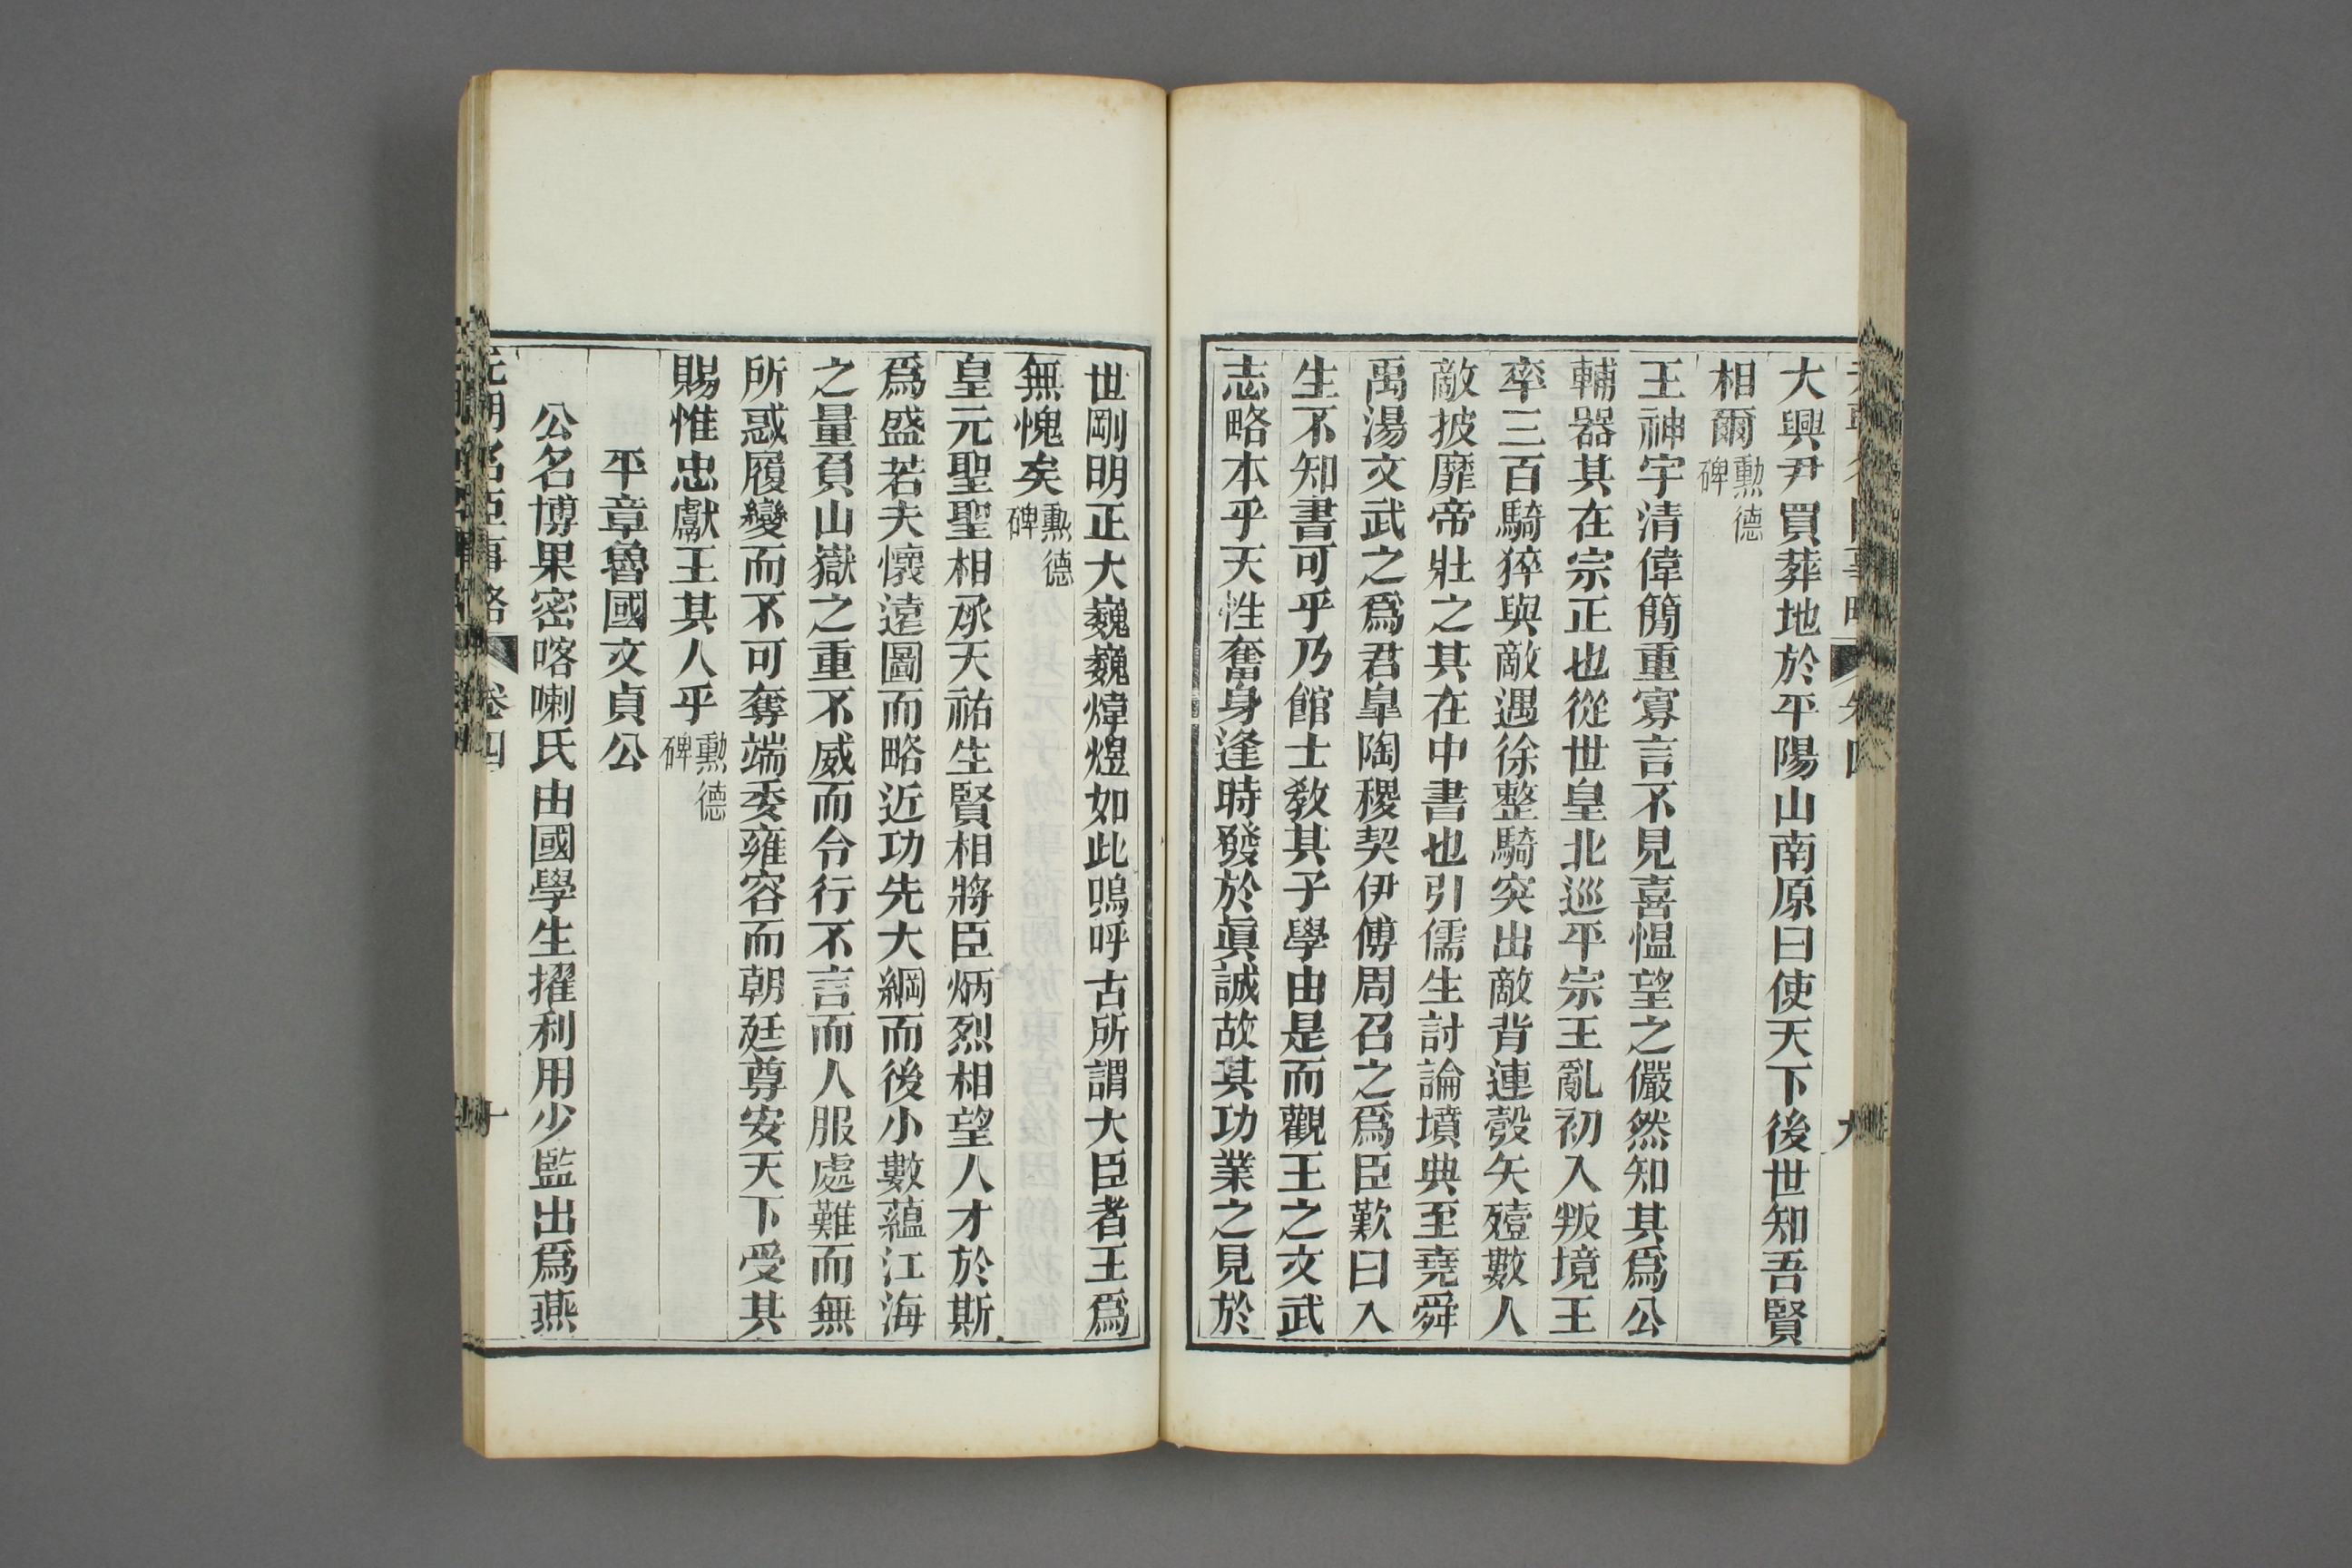 大興尹買葬地於平陽山南原曰使天下後世知吾賢
相爾勳德碑
王神宇清偉簡重寡言不見喜愠望之儼然知其爲公
輔器其在宗正也從世皇北巡平宗王亂初入叛境王
率三百騎猝與敵遇徐整騎突出敵背連彀矢殪數人
敵披靡帝壯之其在中書也引儒生討論墳典至堯舜
禹湯文武之爲君臯陶稷契伊傅周召之爲臣歎曰人
生不知書可乎乃館士敎其子學由是而觀王之文武
志略本乎天性奮身逢時發於眞誠故其功業之見於
世剛明正大巍巍煒煜如此嗚呼古所謂大臣者王爲
無愧矣勳德碑
皇元聖聖相承天祐生賢相將臣炳烈相望人才於斯
爲盛若夫懷遠圖而略近功先大綱而後小數蘊江海
之量負山嶽之重不威而令行不言而人服處難而無
所惑履變而不可奪端委雍容而朝廷尊安天下受其
賜惟忠獻王其人乎勳德碑
平章魯國文貞公
公名博果密喀喇氏由國學生擢利用少監出爲燕
元朝名臣事略 卷四 十